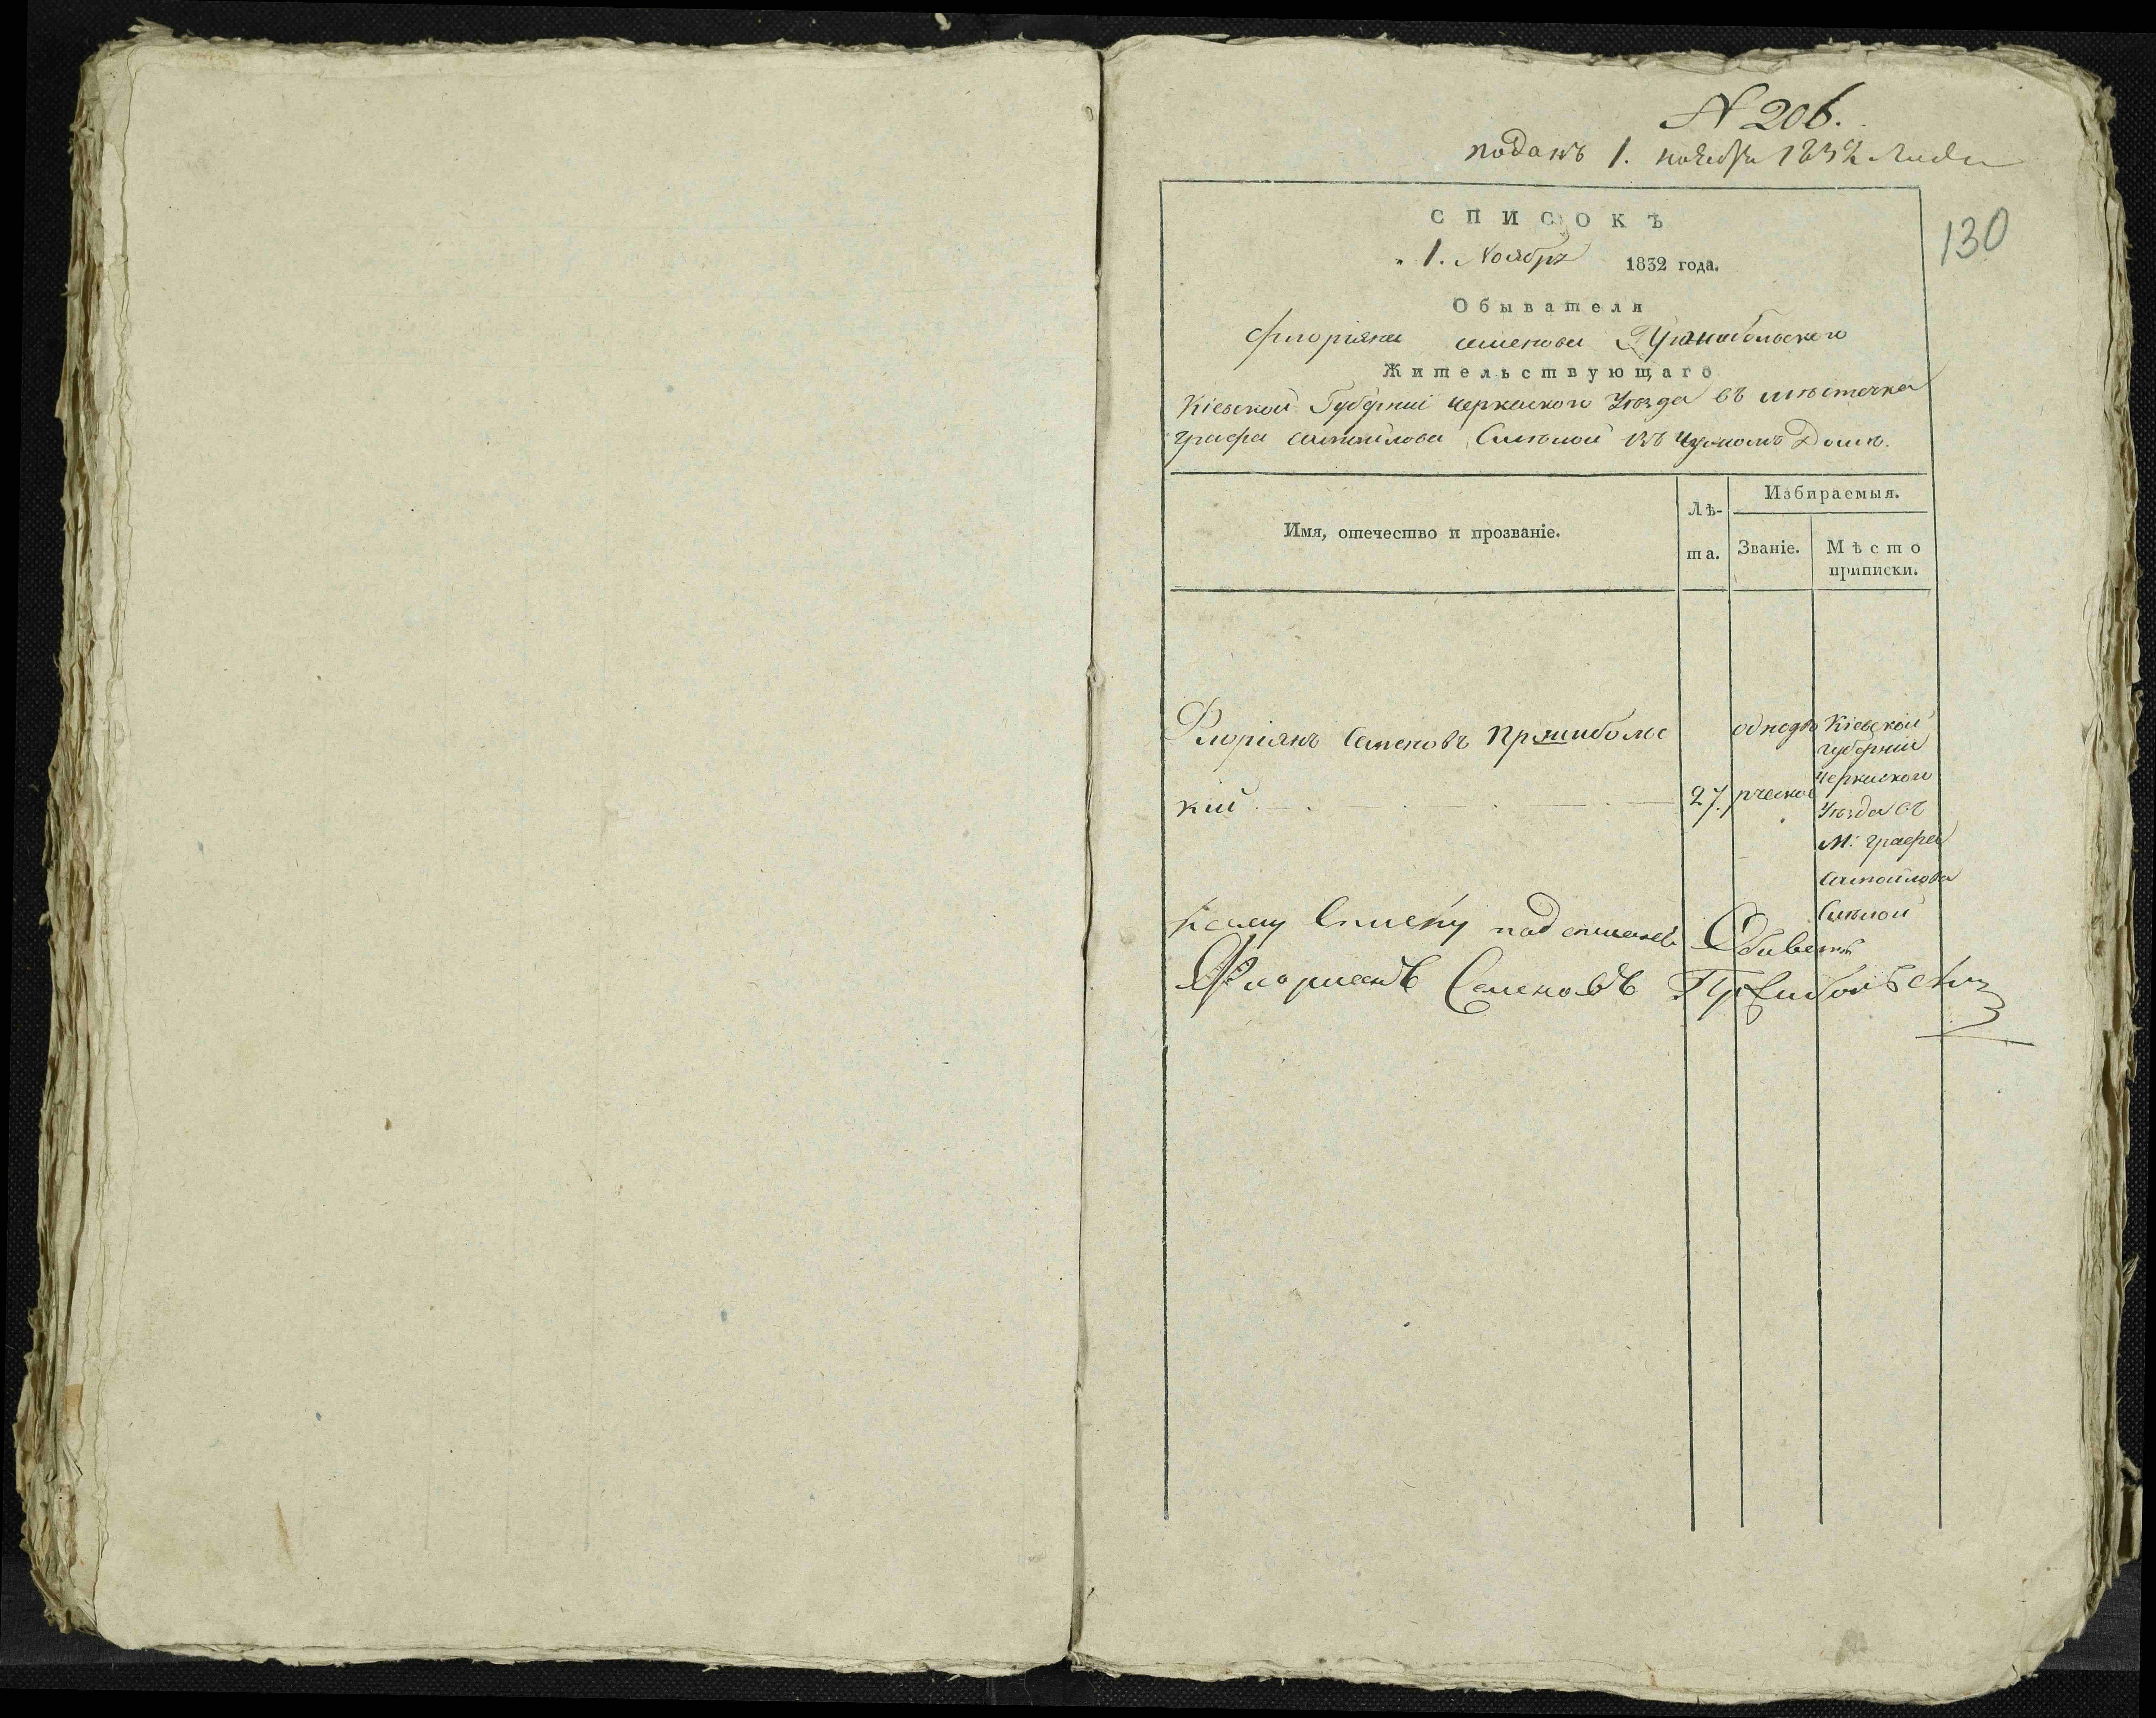 N 206.
поданъ 1. ноября 1832 года
130
СПИСОКЪ
1. Ноября 1832 года.
Обывателя
Флоріяна Семенова
Жительствующаго
Кіевской Губерніи Черкаского Уезда въ местечка
Графа Самойлова Смелой въ Чужомъ Доме.
Имя, отечество и прозваніе.
Лѣ-
та.
Избираемыя.
Званіе.
Мѣсто
приписки.
Флоріянъ Семеновъ Пршиболс
кій 27.
однодво
рческое
Кіевской
губерніи
Черкаского
Уезда въ
М: графа
Самойлова
Смелой
К сему Списку подписался Обыватель
Флорианъ Семеновъ